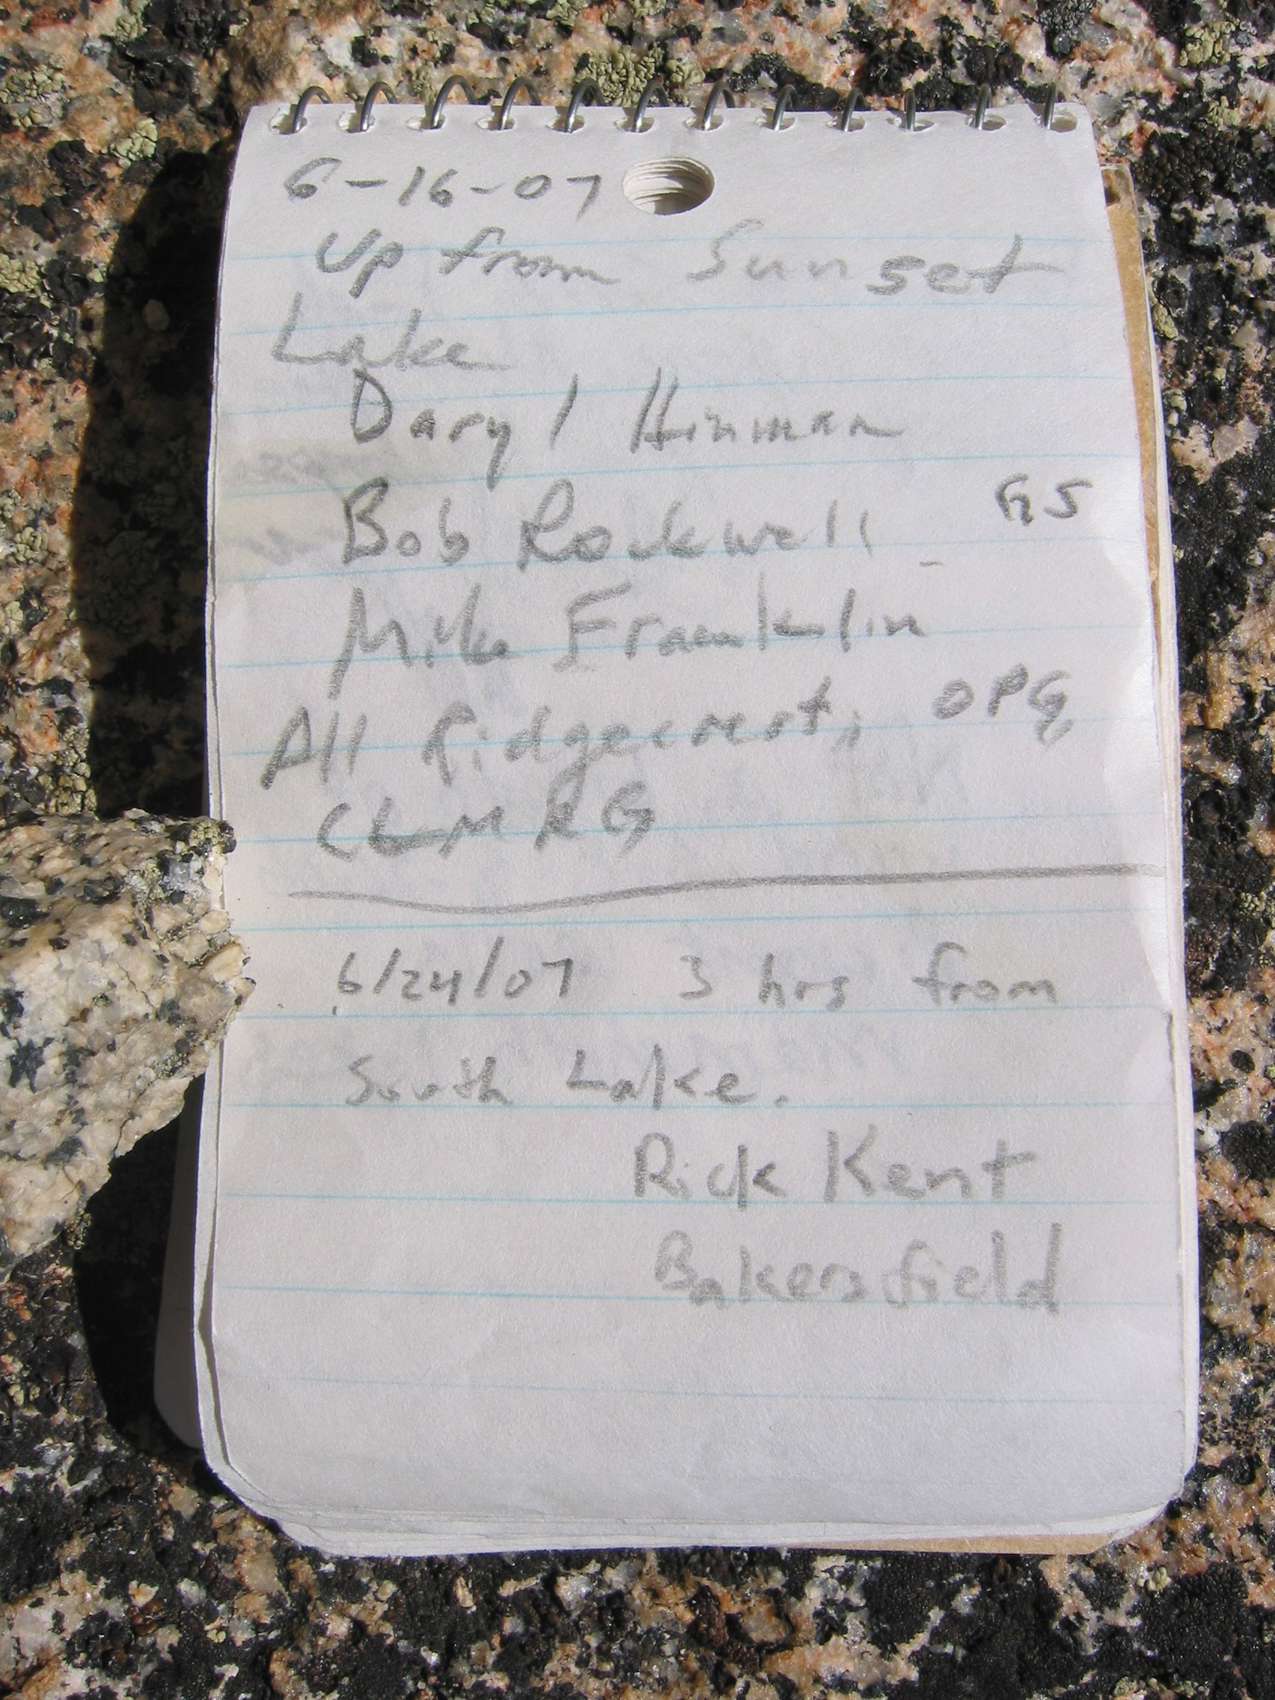 6-16-07
Up from Sunset
Lake
Daryl Hinman
Bob Rockwell GS
Mike Franklin
All Ridgecrest, OPG,
CLMRG
6/24/07 3 hrs from
South Lake.
Rick Kent
Bakersfield